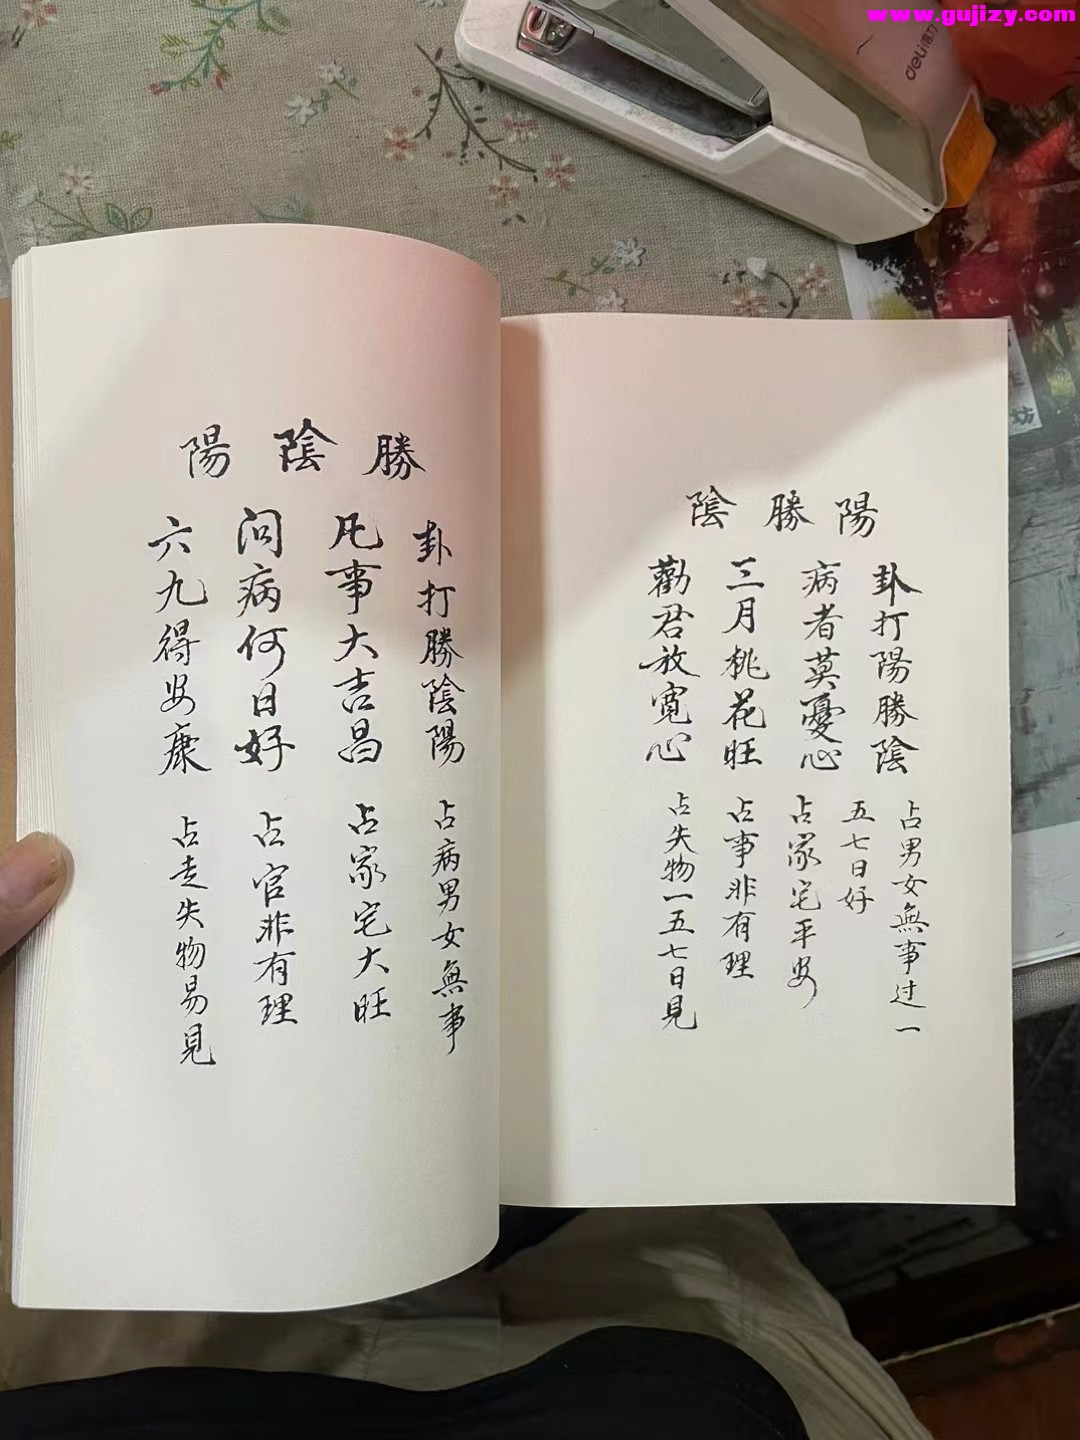 www.gujizy.com
deli得力
陽勝陰
卦打陽勝陰
占男女無事过一
五七日好
病者莫憂心
占家宅平安
三月桃花旺
占事非有理
勸君放寬心
占失物一五七日見
勝陰陽
卦打勝陰陽
占病男女無事
凡事大吉昌
占家宅大旺
问病何日好
占官非有理
六九得安康
占走失物易見
坊